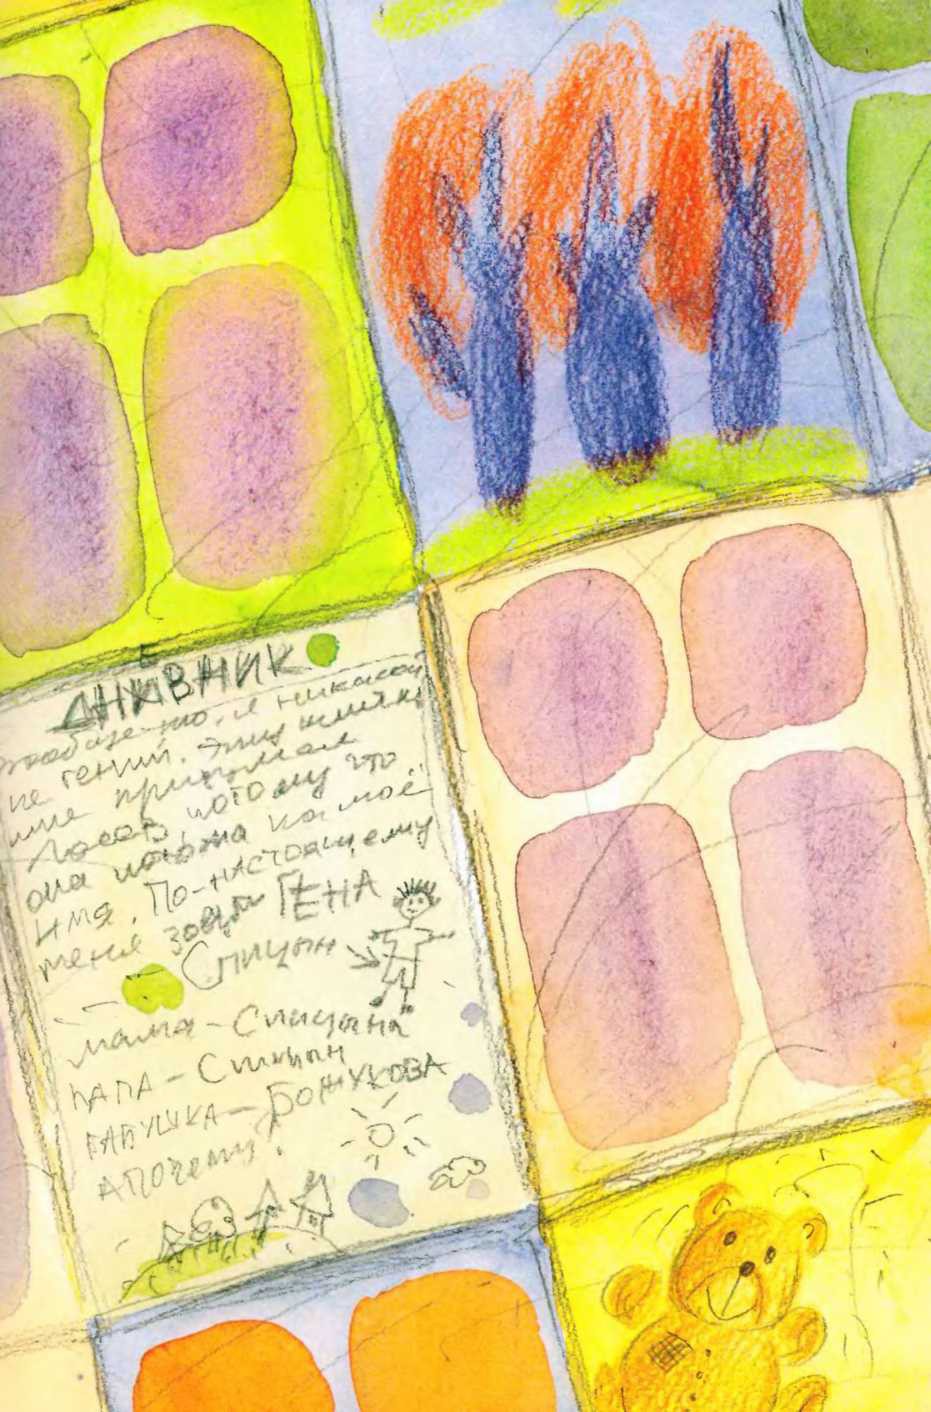 ДНЕВНИК
Вообще-то, я никакой
не гений. Эту кличку
мне придумал
Лосев, потому что
она похожа на моё
имя. По-настоящему
меня зовут ГЕНА
Спицын
мама – Спицына
ПАПА – Спицын
БАБУШКА – БОЖУКОВА
А Почему?